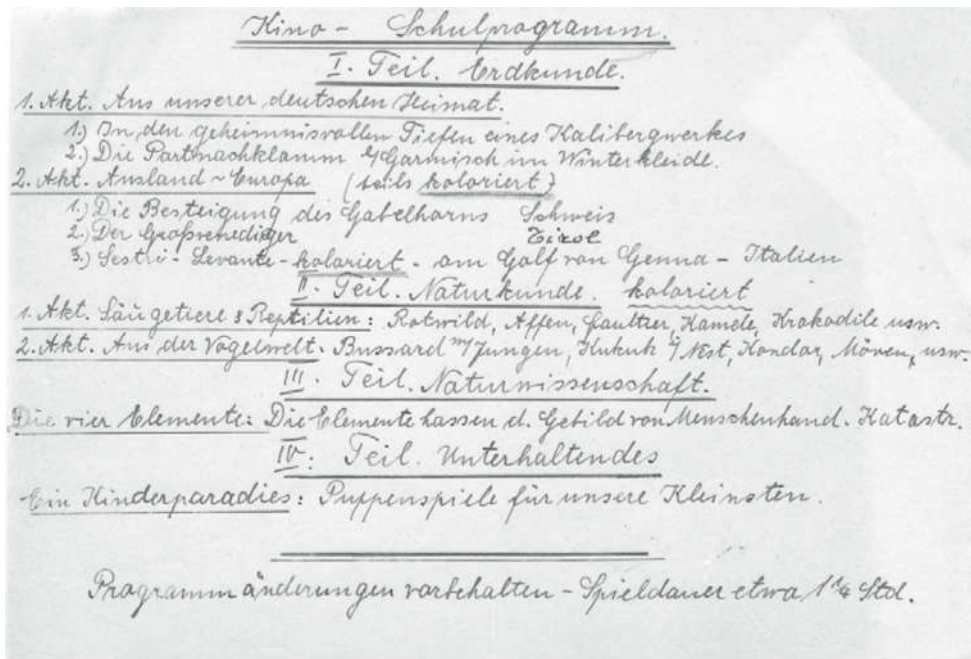 Kino - Schulprogramm.
I. Teil. Erdkunde.
1. Akt. Aus unserer deutschen Heimat.
1.) In den geheimnisvollen Tiefen eines Kalibergwerkes
2.) Die Partnachklamm b/Garmisch im Winterkleide.
2. Akt. Ausland - Europa (teils koloriert)
1.) Die Besteigung des Gabelhorns Schweis
2.) Der Großvenediger Tirol
3.) Sestri - Levante - koloriert - am Golf von Genua - Italien
II. Teil. Naturkunde. koloriert
1. Akt. Säugetiere & Reptilien: Rotwild, Affen, Faultier, Kamele, Krokodile usw.
2. Akt. Aus der Vogelwelt. Bussard m/Jungen, Kukuk i/Nest, Kondor, Möven, usw.
III. Teil. Naturwissenschaft.
Die vier Elemente: Die Elemente hassen d. Gebild von Menschenhand. Katastr.
IV. Teil. Unterhaltendes
Ein Kinderparadies: Puppenspiele für unsere Kleinsten.
Programmänderungen vorbehalten - Spieldauer etwa 1¼ Std.